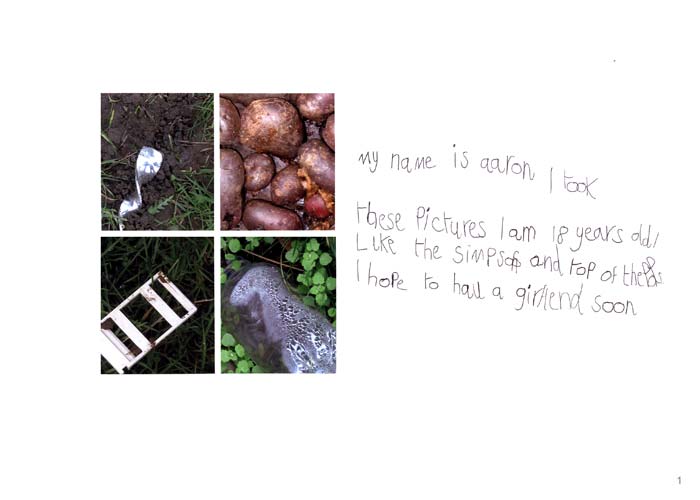 My name is aaron I took
these Pictures I am 18 years old I
Like the simpsos and top of the Pops
I hope to have a girlfend soon
1